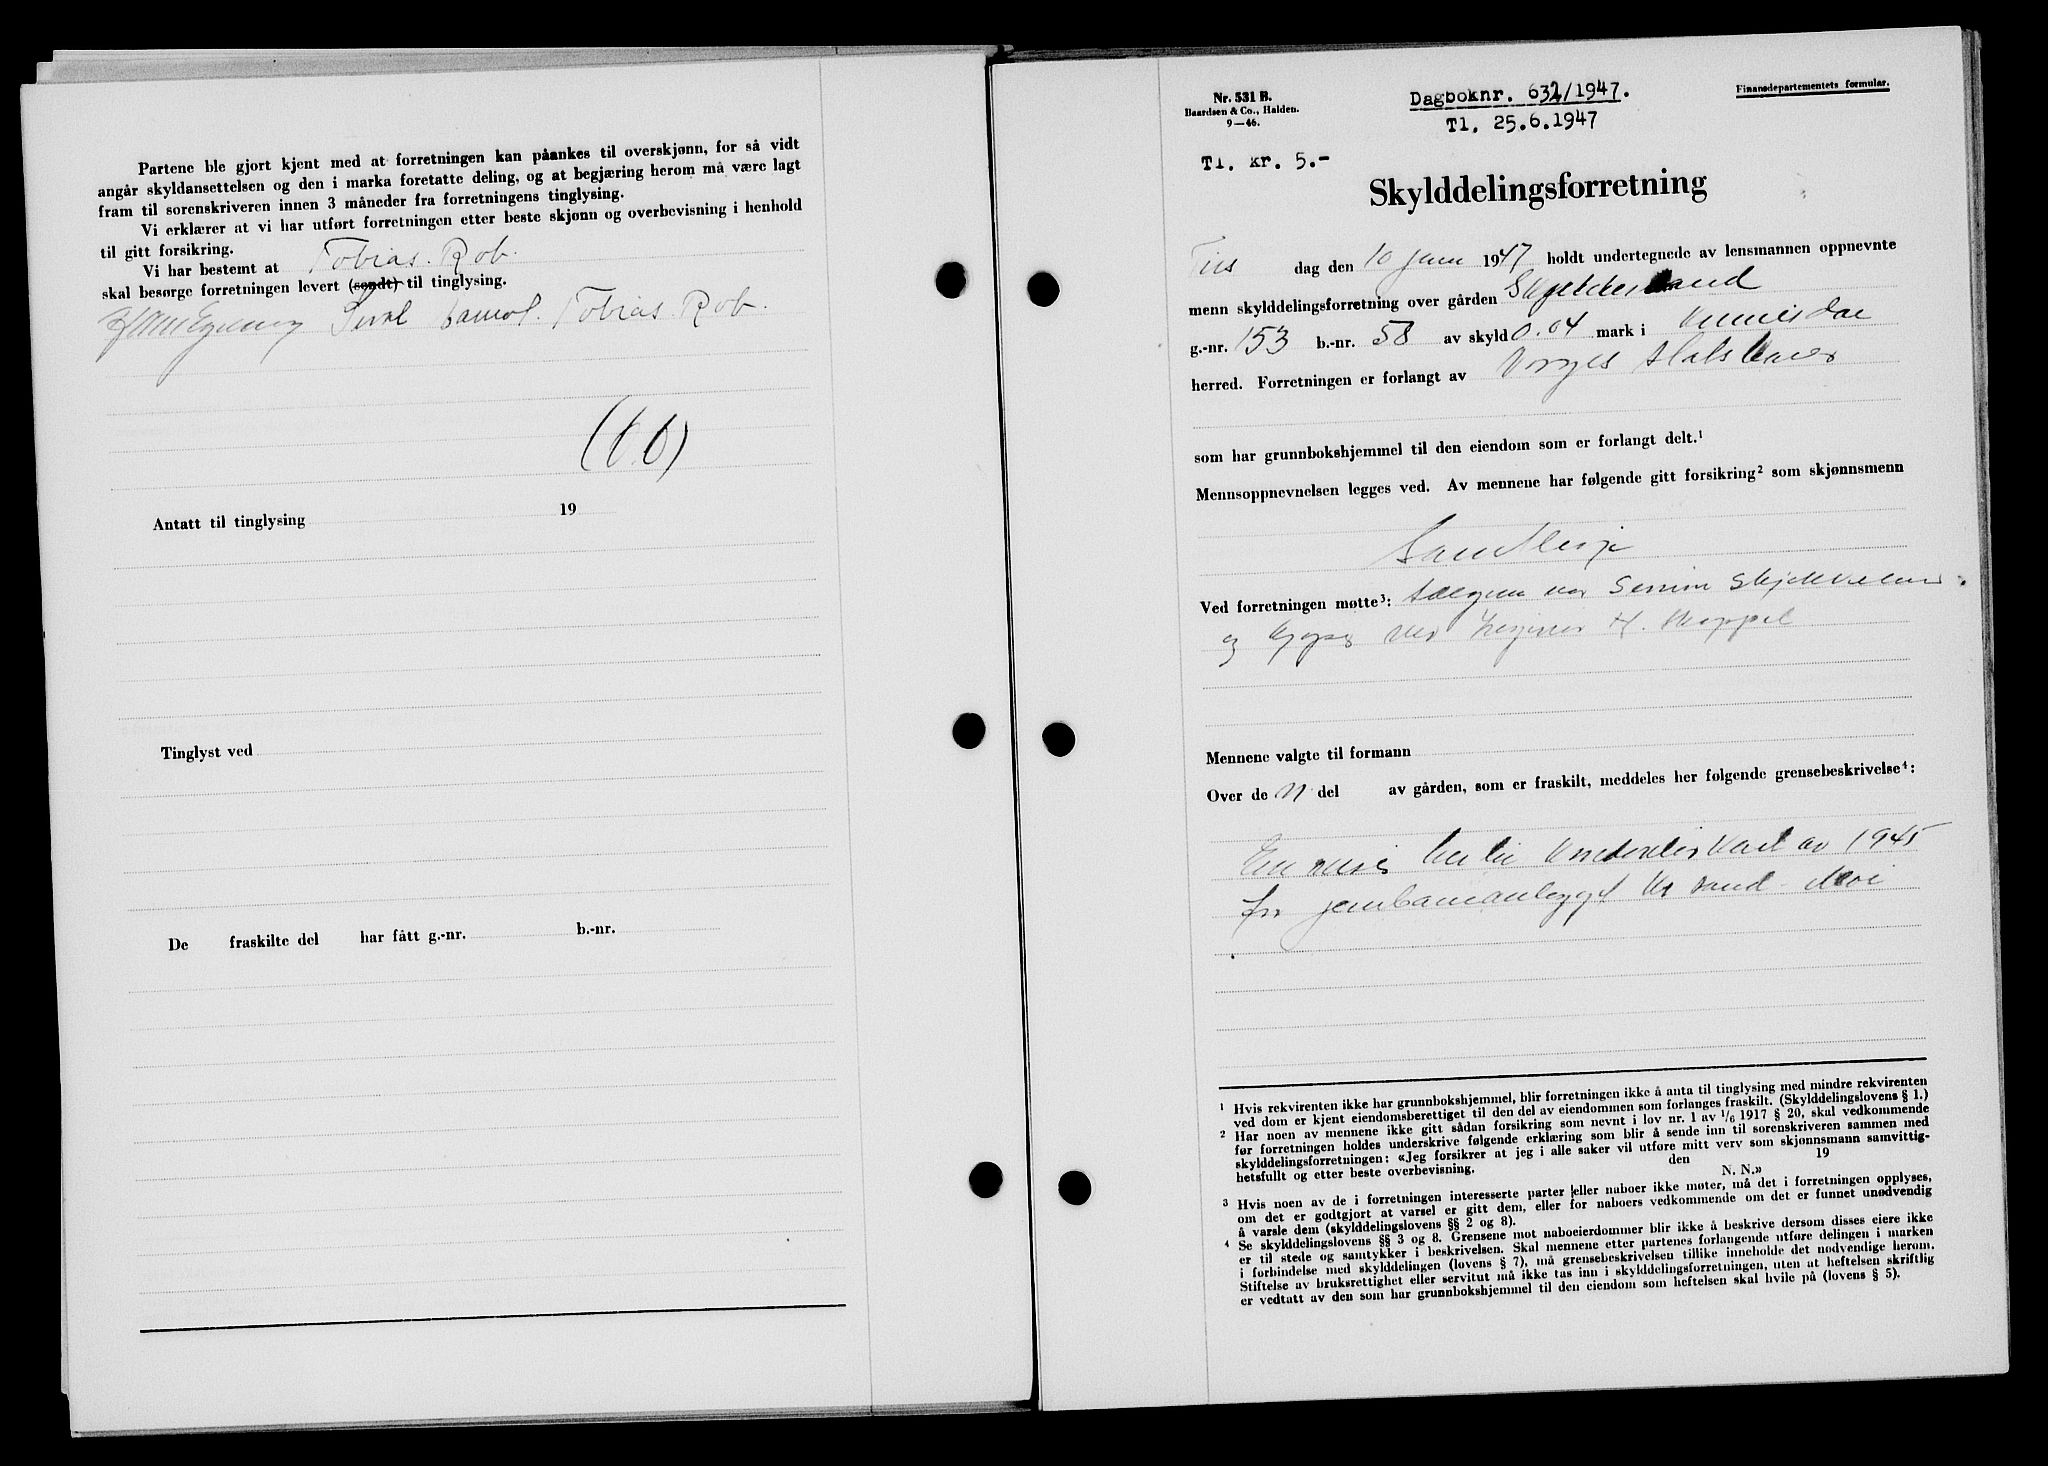 Partene ble gjort kjent med at forretningen kan påankes til overskjønn, for så vidt
angår skyldansettelsen og den i marka foretatte deling, og at begjæring herom må være lagt
fram til sorenskriveren innen 3 måneder fra forretningens tinglysing.
Vi erklærer at vi har utført forretningen etter beste skjønn og overbevisning i henhold
til gitt forsikring.
Vi har bestemt at Tobias. Rob.
skal besørge forretningen levert (sendt) til tinglysing.
Tobias. Rob.
Antatt til tinglysing 19
Tinglyst ved
De fraskilte del har fått g.-nr. b.-nr.
Nr. 531 B.
Baardsen & Co., Halden.
9—46.
Dagboknr. 632/1947.
Tl. 25.6.1947
Finansdepartementets formular.
Tl. kr. 5.-
Skylddelingsforretning
Tirs dag den 10 juni 1947 holdt undertegnede av lensmannen oppnevnte
menn skylddelingsforretning over gården
g.-nr. 153 b.-nr. 58 av skyld 0.04 mark i
herred. Forretningen er forlangt av Norges Statsbaner
som har grunnbokshjemmel til den eiendom som er forlangt delt.¹
Mennsoppnevnelsen legges ved. Av mennene har følgende gitt forsikring² som skjønnsmenn
Samtlige
Ved forretningen møtte³:
og
Mennene valgte til formann
Over de n del av gården, som er fraskilt, meddeles her følgende grensebeskrivelse⁴:
av 1945
for jernbaneanlegget Kr sand - Moi
¹ Hvis rekvirenten ikke har grunnbokshjemmel, blir forretningen ikke å anta til tinglysing med mindre rekvirenten
ved dom er kjent eiendomsberettiget til den del av eiendommen som forlanges fraskilt. (Skylddelingslovens § 1.)
² Har noen av mennene ikke gitt sådan forsikring som nevnt i lov nr. 1 av 1/6 1917 § 20, skal vedkommende
før forretningen holdes underskrive følgende erklæring som blir å sende inn til sorenskriveren sammen med
skylddelingsforretningen: «Jeg forsikrer at jeg i alle saker vil utføre mitt verv som skjønnsmann samvittig-
hetsfullt og etter beste overbevisning. den 19
N. N.»
³ Hvis noen av de i forretningen interesserte parter eller naboer ikke møter, må det i forretningen opplyses,
om det er godtgjort at varsel er gitt dem, eller for naboers vedkommende om det er funnet unødvendig
å varsle dem (skylddelingslovens §§ 2 og 8).
⁴ Se skylddelingslovens §§ 3 og 8. Grensene mot naboeierdommer blir ikke å beskrive dersom disses eiere ikke
er til stede og samtykker i beskrivelsen. Skal mennene etter partenes forlangende utføre delingen i marken
i forbindelse med skylddelingen (lovens § 7), må grensebeskrivelsen tillike inneholde det nødvendige herom.
Stiftelse av bruksrettighet eller servitut må ikke tas inn i skylddelingsforretningen, uten at heftelsen skriftlig
er vedtatt av den som har grunnbokshjemmel til den eiendom som heftelsen skal hvile på (lovens § 5).